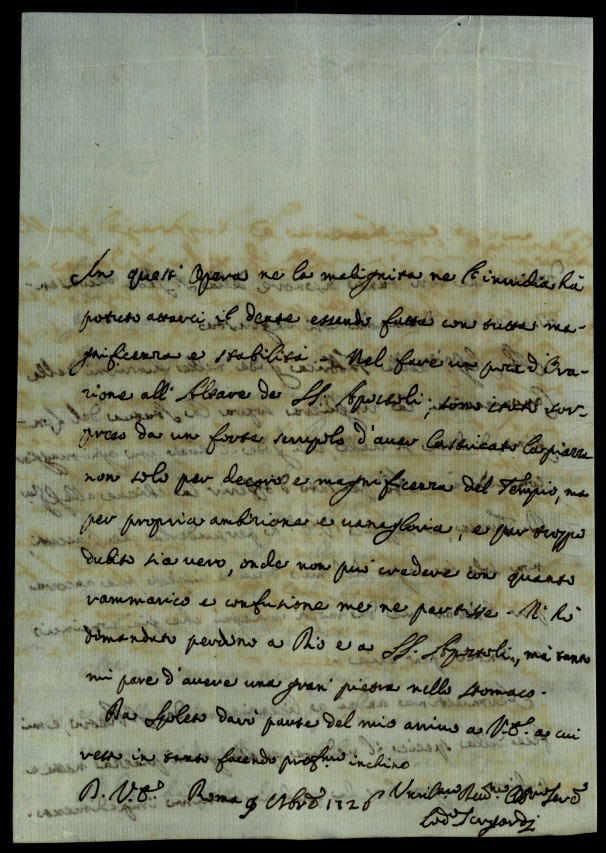 In quest'Opera ne la malignita ne l'invidia há
potuto attarci il dente essendo fatta con tutta ma-
gnificenza e stabilitá. Nel fare un poco d'Ora-
zione all'Altare de SS. Apostoli, sono stato sor-
preso da un forte scrupolo d'aver lastricato la piazza
non solo per decoro e magnificenza del Tempio, ma
per propria ambizione e vanagloria, e pur troppo
dubito sia vero, onde non puó credere con quanto
rammarico e confusione me ne partisse. N'hó
domandato perdono a Dio e a SS. Apostoli, má tanto
mi pare d'avere una gran pietra nello stomaco.
Da Spoleto daró parte del mio arrivo a V.S. a cui
resto in tanto facendo profmo inchino
D. V.S. Roma 9 1726
Lodo Sergardi